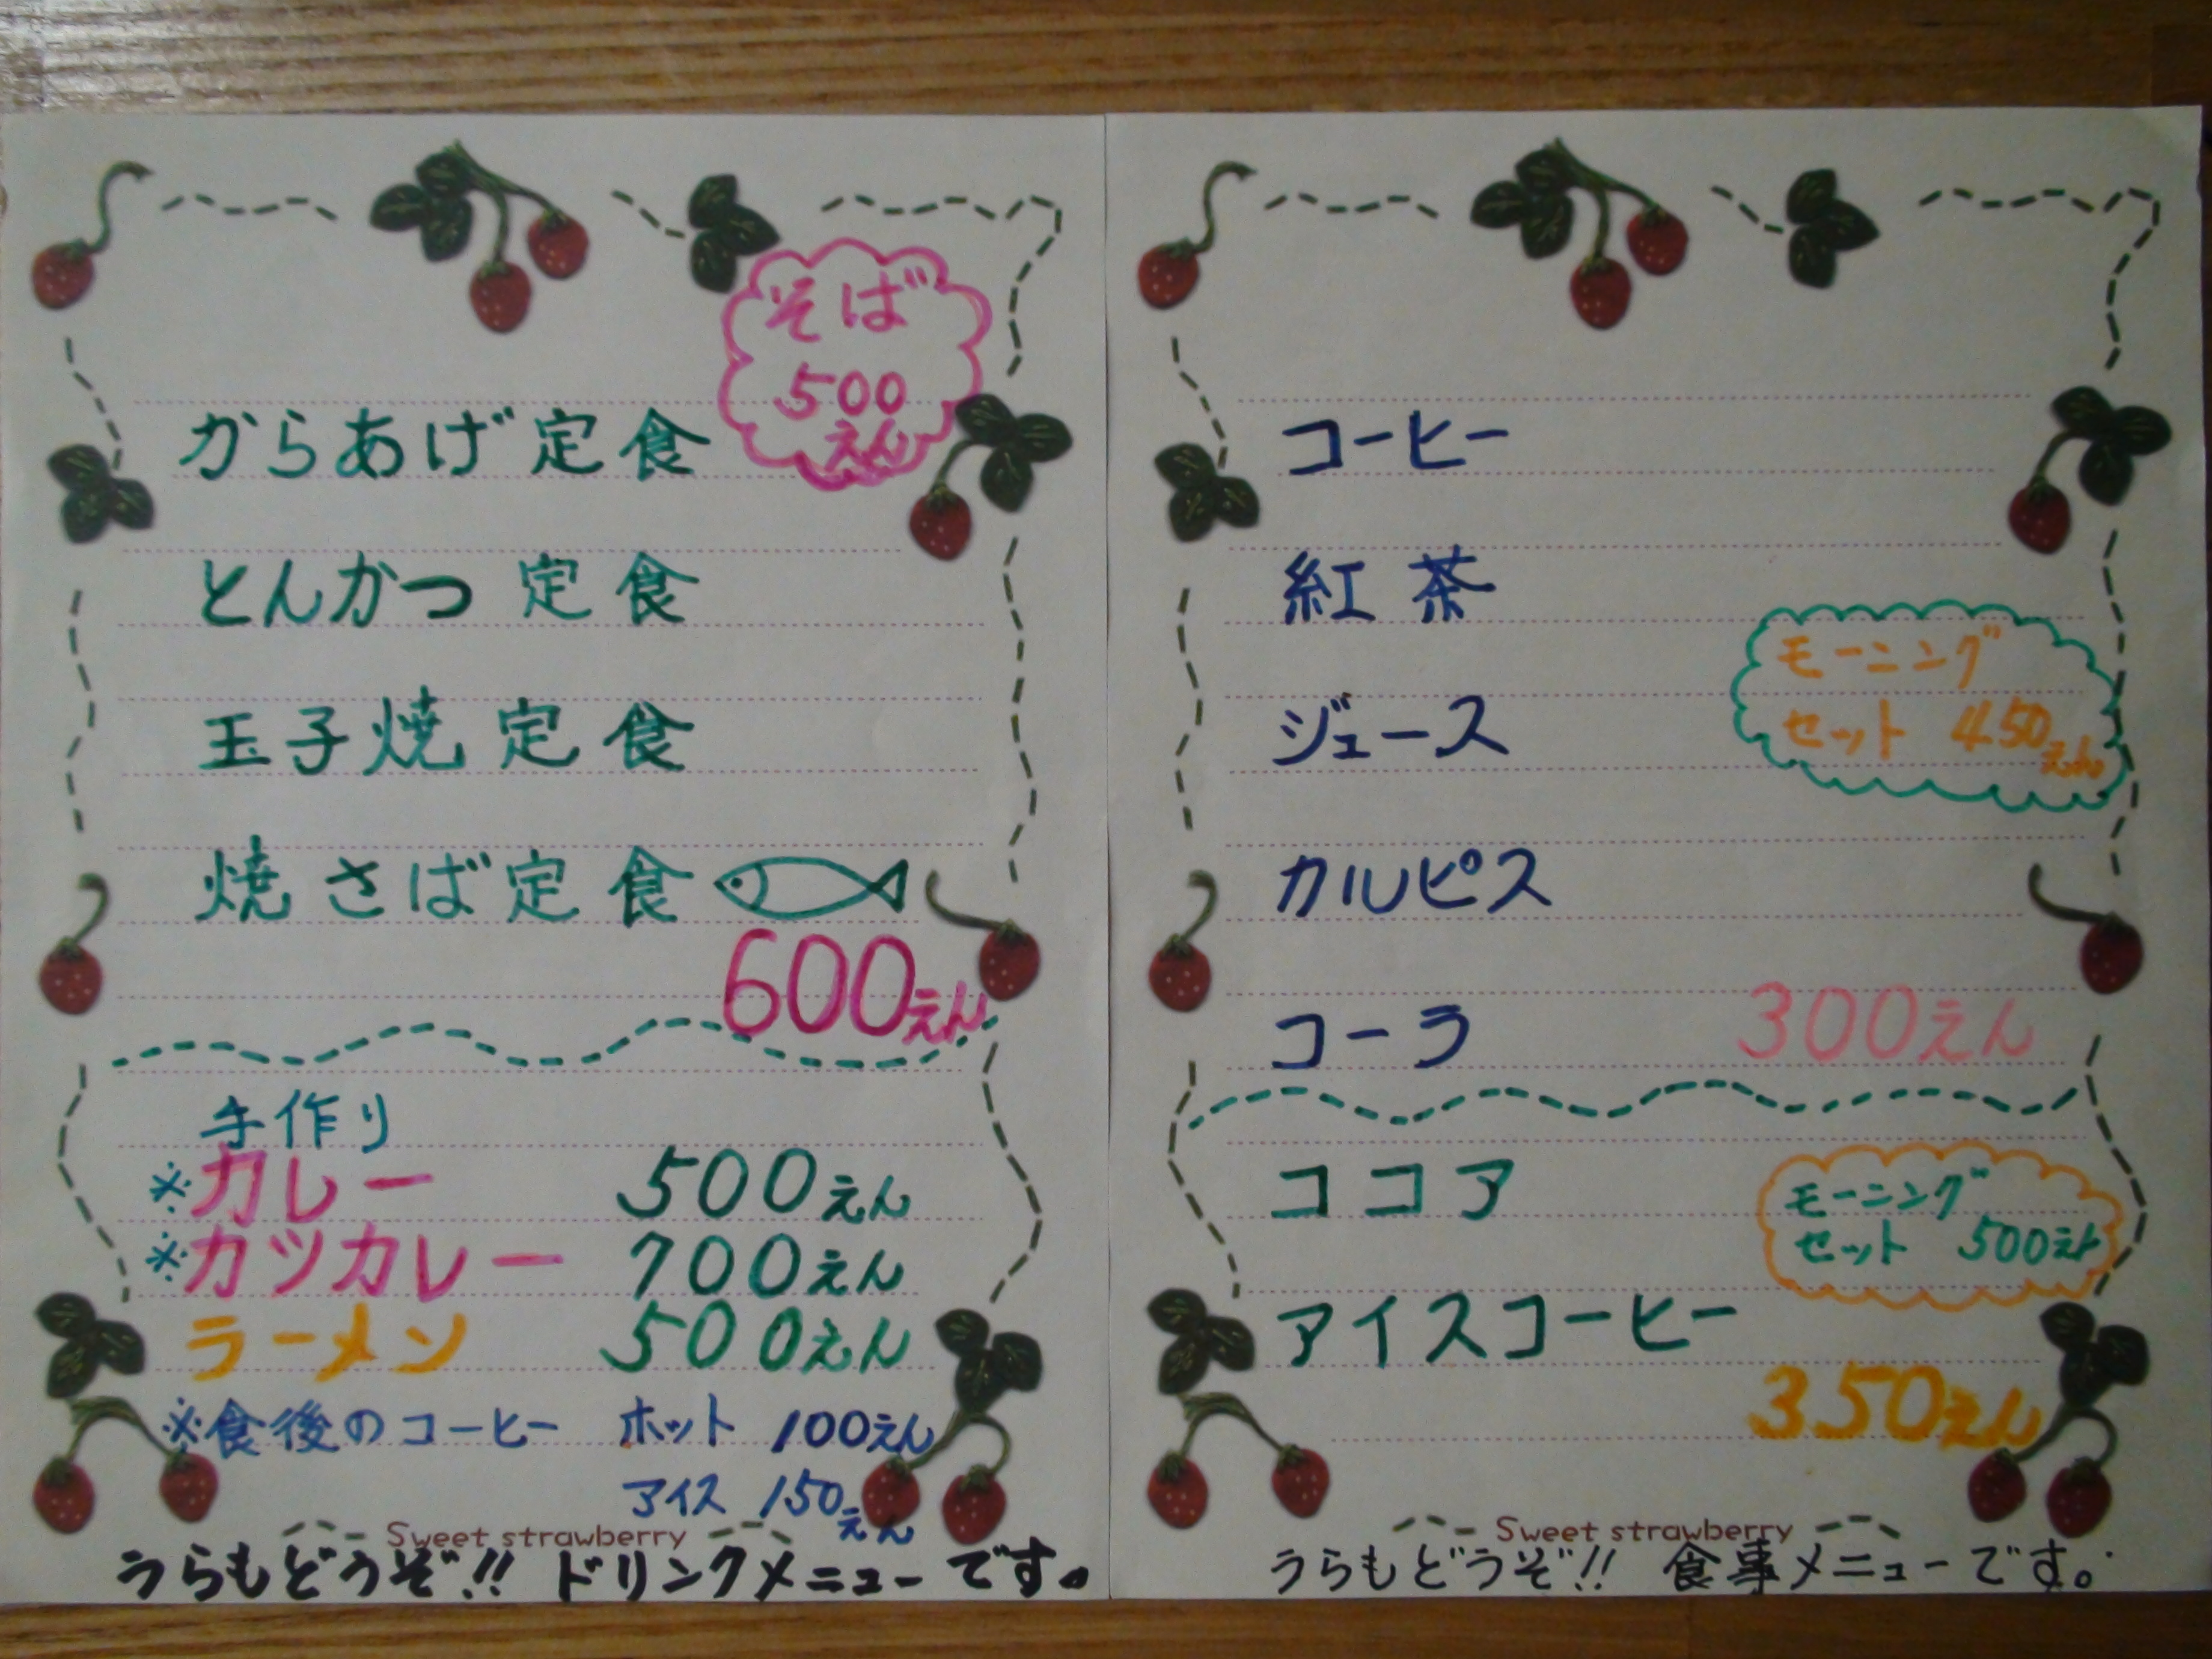 そば
500
えん
からあげ定食
とんかつ定食
玉子焼定食
焼さば定食
600えん
手作り
※カレー 500えん
※カツカレー 700えん
ラーメン 500えん
※食後のコーヒー ホット 100えん
アイス 150えん
Sweet strawberry
うらもどうぞ!! ドリンクメニューです。
コーヒー
紅茶
モーニング
セット 450えん
ジュース
カルピス
コーラ 300えん
ココア
モーニング
セット 500えん
アイスコーヒー
350えん
Sweet strawberry
うらもどうぞ!! 食事メニューです。